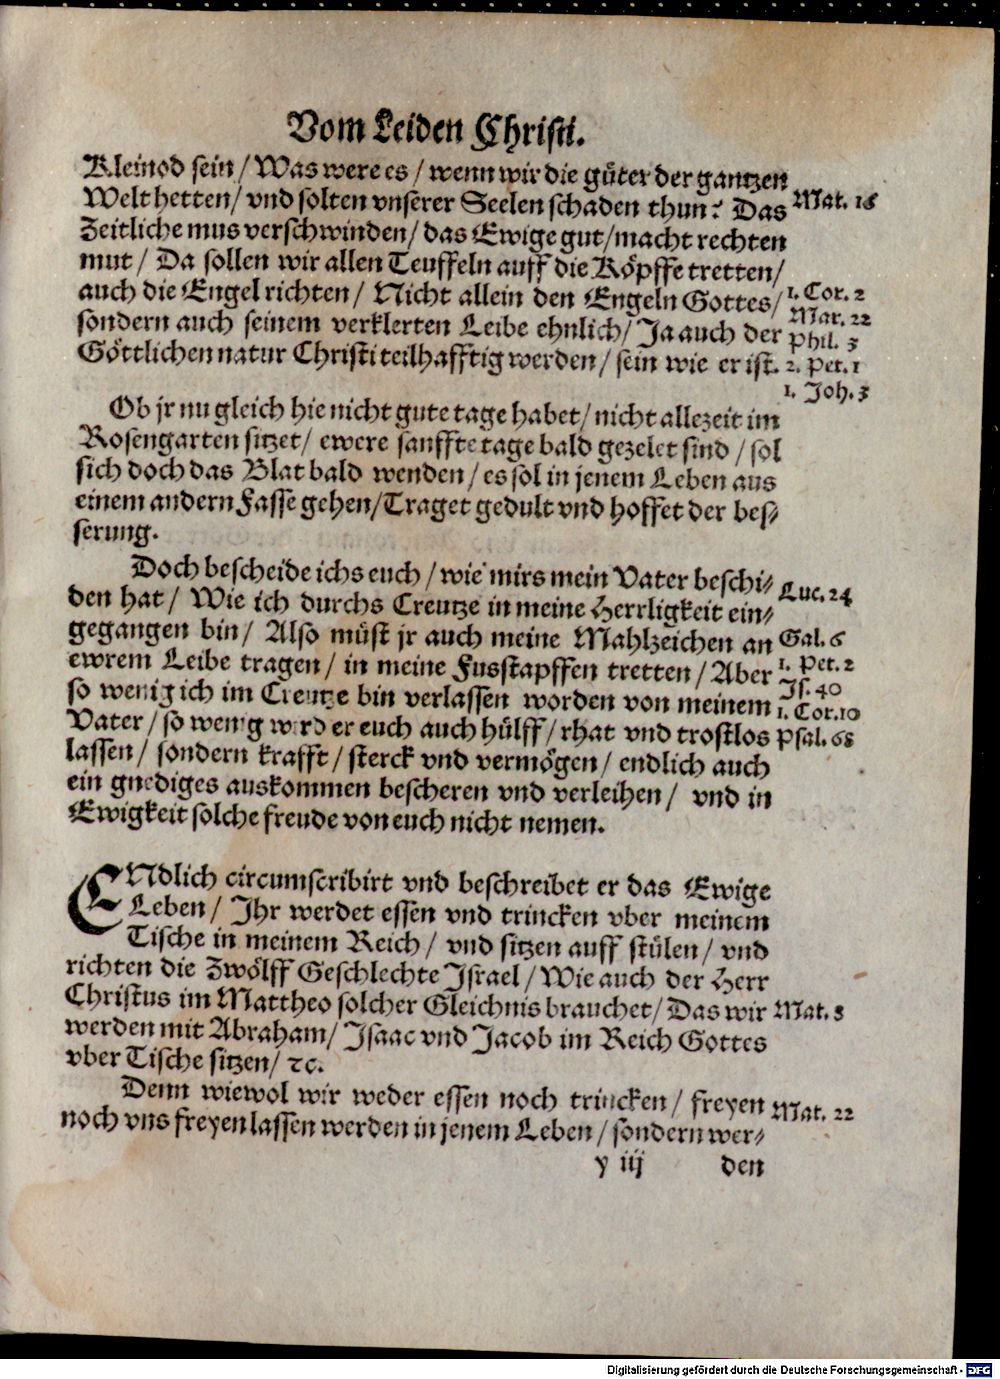 Vom Leiden Christi.
Kleinod sein / Was were es / wenn wir die güter der gantzen
Welt hetten / vnd solten vnserer Seelen schaden thun? Das Mat. 16
Zeitliche mus verschwinden / das Ewige gut / macht rechten
mut / Da sollen wir allen Teuffeln auff die Köpffe tretten /
auch die Engel richten / Nicht allein den Engeln Gottes / 1. Cor. 2
Mar. 22
sondern auch seinem verklerten Leibe ehnlich / Ja auch der Phil. 3
Göttlichen natur Christi teilhafftig werden / sein wie er ist. 2. Pet. 1
1. Joh. 3
Ob jr nu gleich hie nicht gute tage habet / nicht allezeit im
Rosengarten sitzet / ewere sanffte tage bald gezelet sind / sol
sich doch das Blat bald wenden / es sol in jenem Leben aus
einem andern Fasse gehen / Traget gedult vnd hoffet der bes⸗
serung.
Doch bescheide ichs euch / wie mirs mein Vater beschi⸗ Luc. 24
den hat / Wie ich durchs Creutze in meine Herrligkeit ein⸗
gegangen bin / Also müst jr auch meine Mahlzeichen an Gal. 6
ewrem Leibe tragen / in meine Fusstapffen tretten / Aber 1. Pet. 2
so wenig ich im Creutze bin verlassen worden von meinem Js. 40
1. Cor. 10
Vater / so wenig wird er euch auch hülff / rhat vnd trostlos Psal. 68
lassen / sondern krafft / sterck vnd vermögen / endlich auch
ein gnediges auskommen bescheren vnd verleihen / vnd in
Ewigkeit solche freude von euch nicht nemen.
ENdlich circumscribirt vnd beschreibet er das Ewige
Leben / Ihr werdet essen vnd trincken vber meinem
Tische in meinem Reich / vnd sitzen auff stülen / vnd
richten die Zwölff Geschlechte Israel / Wie auch der Herr
Christus im Mattheo solcher Gleichnis brauchet / Das wir Mat. 8
werden mit Abraham / Isaac vnd Jacob im Reich Gottes
vber Tische sitzen / ꝛc.
Denn wiewol wir weder essen noch trincken / freyen Mat. 22
noch vns freyen lassen werden in jenem Leben / sondern wer⸗
y iij den
Digitalisierung gefördert durch die Deutsche Forschungsgemeinschaft - DFG